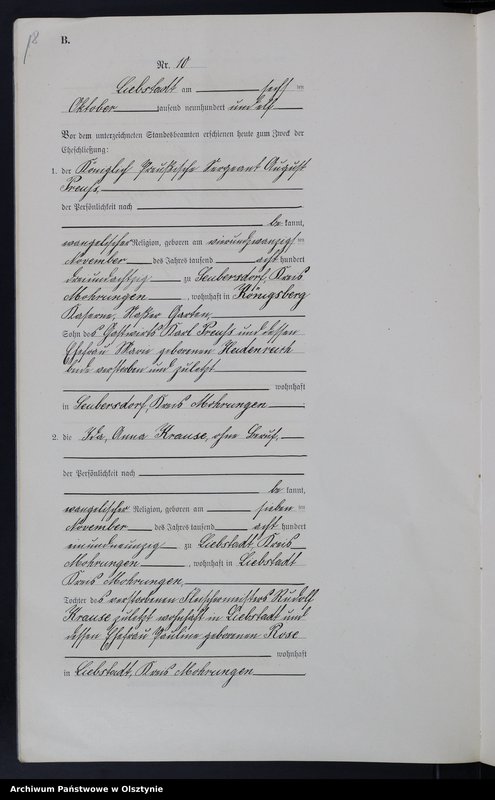 B.
Nr. 10
Liebstadt am sechs ten
Oktober tausend neunhundert und elf
Vor dem unterzeichneten Standesbeamten erschienen heute zum Zweck der
Eheschließung:
1. der Königlich Preußische Sergeant August
Preuß,
der Persönlichkeit nach
be kannt,
evangelischer Religion, geboren am vierundzwanzigs ten
November des Jahres tausend acht hundert
dreiundachtzig zu Seubersdorf, Kreis
Mohrungen, wohnhaft in Königsberg
Kaserne, Naßer Garten,
Sohn des Gastwirts Karl Preuß und dessen
Ehefrau geborenen Heidenreich
beide verstorben und zuletzt
wohnhaft
in Seubersdorf, Kreis Mohrungen
2. die Ida, Anna Krause, ohne Beruf,
der Persönlichkeit nach
be kannt,
evangelischer Religion, geboren am sieben ten
November des Jahres tausend acht hundert
einundneunzig zu Liebstadt, Kreis
Mohrungen, wohnhaft in Liebstadt
Kreis Mohrungen,
Tochter des verstorbenen Fleischermeisters Rudolf
Krause zuletzt wohnhaft in Liebstadt und
dessen Ehefrau Pauline geborenen Rose
wohnhaft
in Liebstadt, Kreis Mohrungen
Archiwum Państwowe w Olsztynie